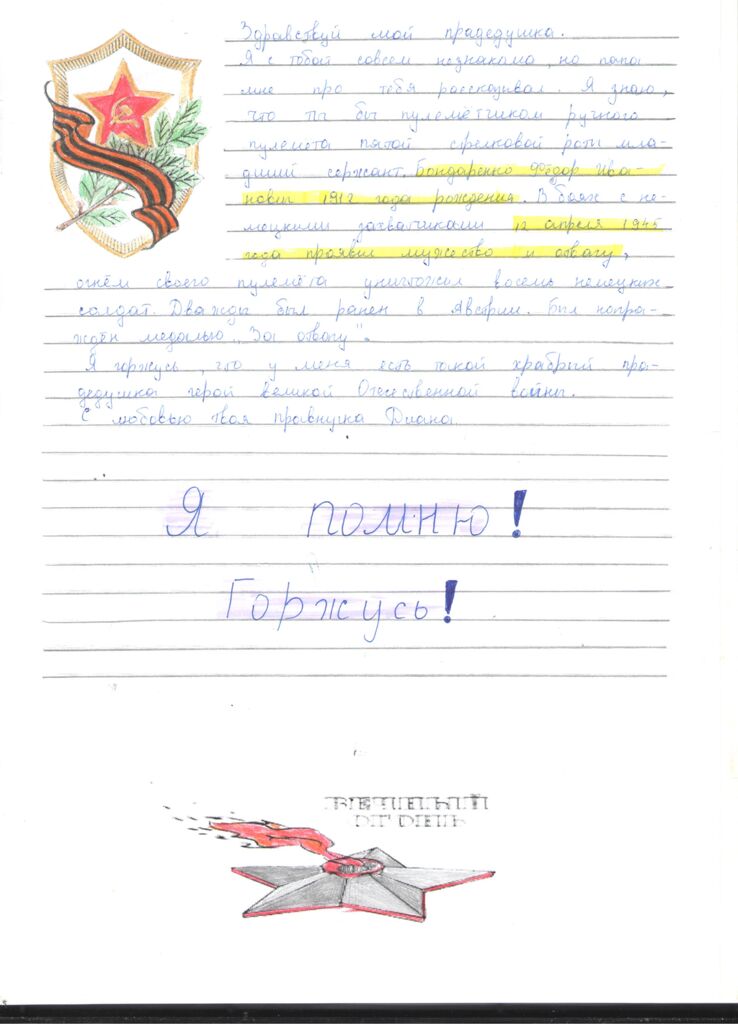 Здравствуй мой прадедушка.
Я с тобой совсем незнакома, но папа
мне про тебя рассказывал. Я знаю,
что ты был пулемётчиком ручного
пулемета пятой стрелковой роты мла-
дший сержант. Бондаренко Фёдор Ива-
нович 1912 года рождения. В боях с не-
мецкими захватчиками 12 апреля 1945
года проявил мужество и отвагу,
огнём своего пулемёта уничтожил восемь немецких
солдат. Дважды был ранен в Австрии. Был награ-
ждён медалью „За отвагу".
Я горжусь, что у меня есть такой храбрый пра-
дедушка герой великой Отечественной войны.
С любовью твоя правнучка Диана.
Я помню!
Горжусь!
ВЕЧНЫЙ
ОГОНЬ